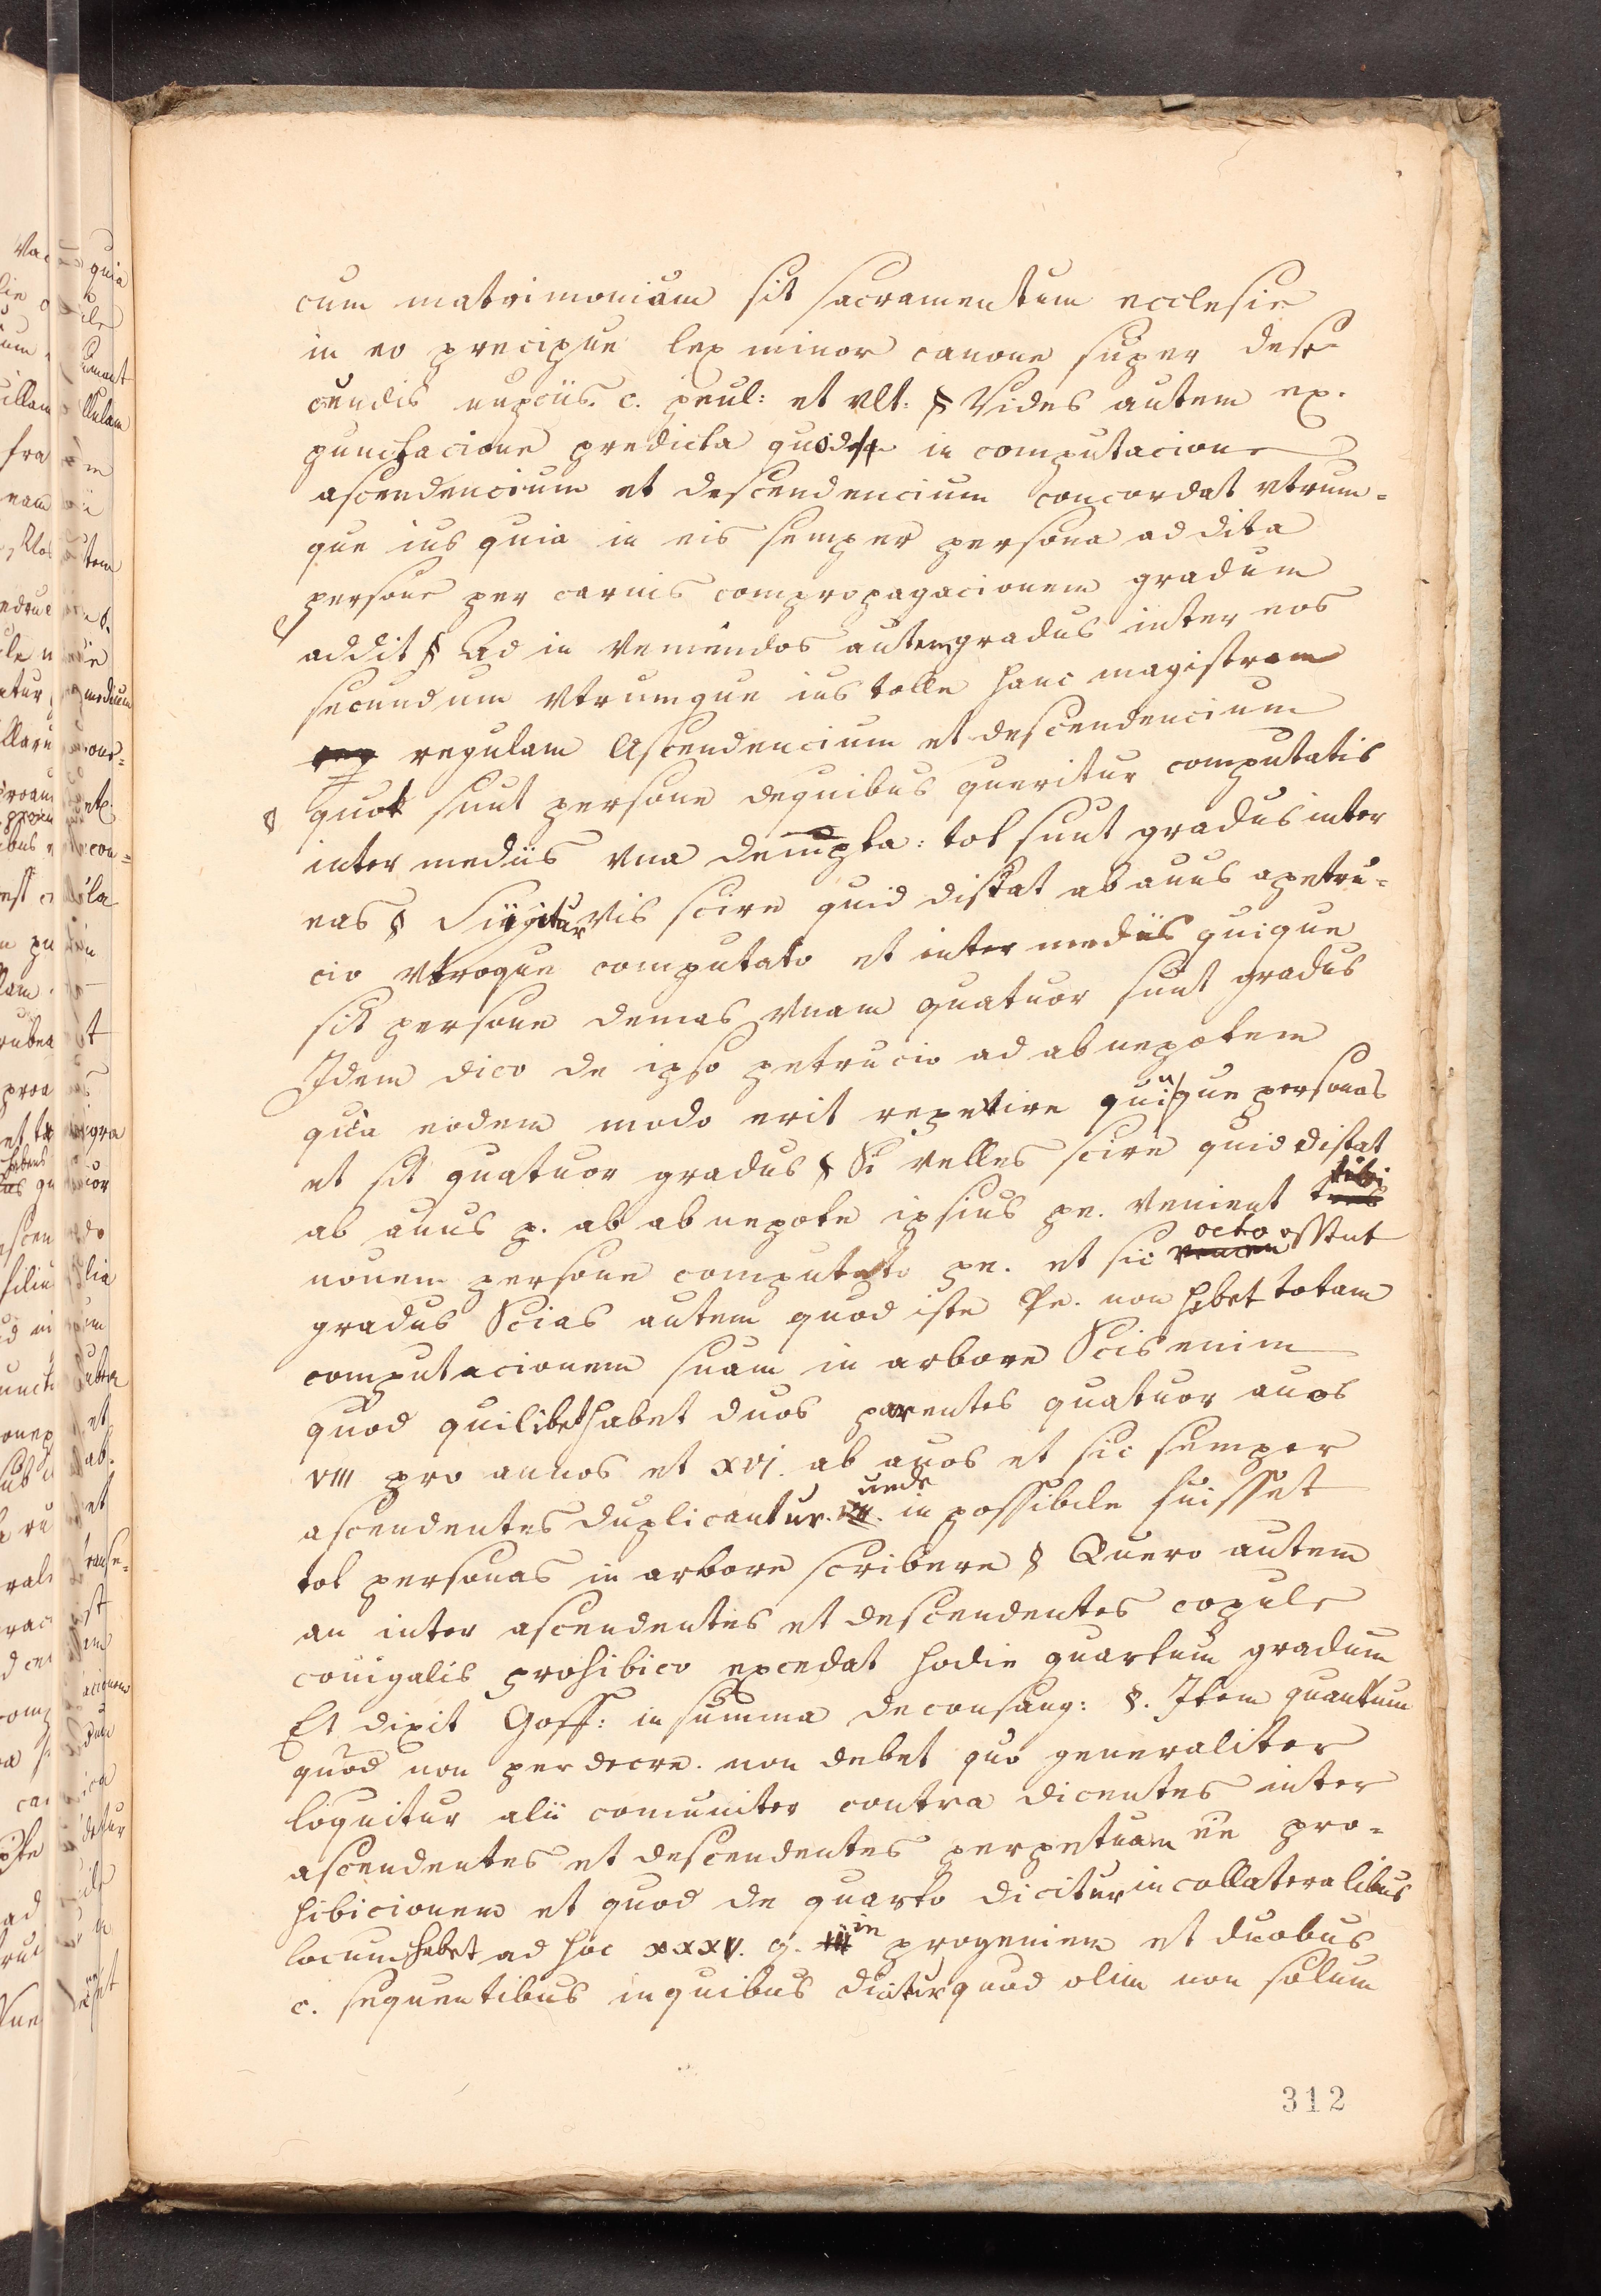 cum matrimonium sit sacramentum ecclesie
in eo precipue lex minor canone super dese
cundis nupciis. c. penl: et vlt: § Vides autem ex.
punctacione predicta quod in computacione
ascendencium et descendencium concordat vtrum=
que ius quia in eis semper persona ad dita
persone per carnis compropagacionem gradum
addit § Ad in veniendos autem gradus inter eos
secundum vtrumque ius tolle hanc magistram
reg regulam Ascendencium et descendencium
§ quot sunt persone dequibus queritur computatis
inter mediis vna dempta: tot sunt gradus inter
eas § Si igitur vis scire quid distat ab auus apetru=
cio vtroque computato et inter mediis quique
sit persone demas vnam quatuor sunt gradus
Idem dico de ipso petrucio ad ab nepotem
quia eodem modo erit repetire quinque personas
et sit quatuor gradus § Si velles scire quid distat
ab auus p. ab ab nepote ipsius pe. venient tibi
nouem persone computato pe. et sii octo
gradus Scias autem quod iste Pe. non habet totam
computacionem suam in arbore Scis enim
quod quilibet habet duos parentes quatuor auos
VIII pro auuos et XVI. ab auos et sic semper
ascendentes duplicantur. unde in possibile fuisset
tot personas in arbore scribere § Quero autem
an inter ascendentes et descendentes copule
coniugalis prohibicio excedat hodie quartum gradum
Et dixit Goff: in summa deconsang: §. Item quantum
quod non per decre. non debet quo generaliter
loquitur alii comuniter contra dicentes inter
ascendentes et descendentes perpetuam ee pro=
hibicionem et quod de quarto dicitur in collateralibus
locum habet ad hoc XXXV. q. in progeniem et duobus
c. sequentibus in quibus dicitur quod olim non solum
312